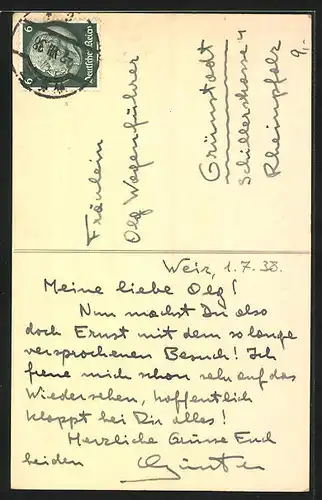 6 6
Deutsches Reich
Fräulein
Olg Wagenführer
Grünstadt
Schillerstrasse 4
Rheinpfalz
9,-
1.7.38.
Meine liebe Olg!
Nun machst Du also
doch Ernst mit dem so lange
versprochenen Besuch! Ich
freue mich schon sehr auf das
Wiedersehen, hoffentlich
klappt bei Dir alles!
Herzliche Grüsse Euch
beiden Günter